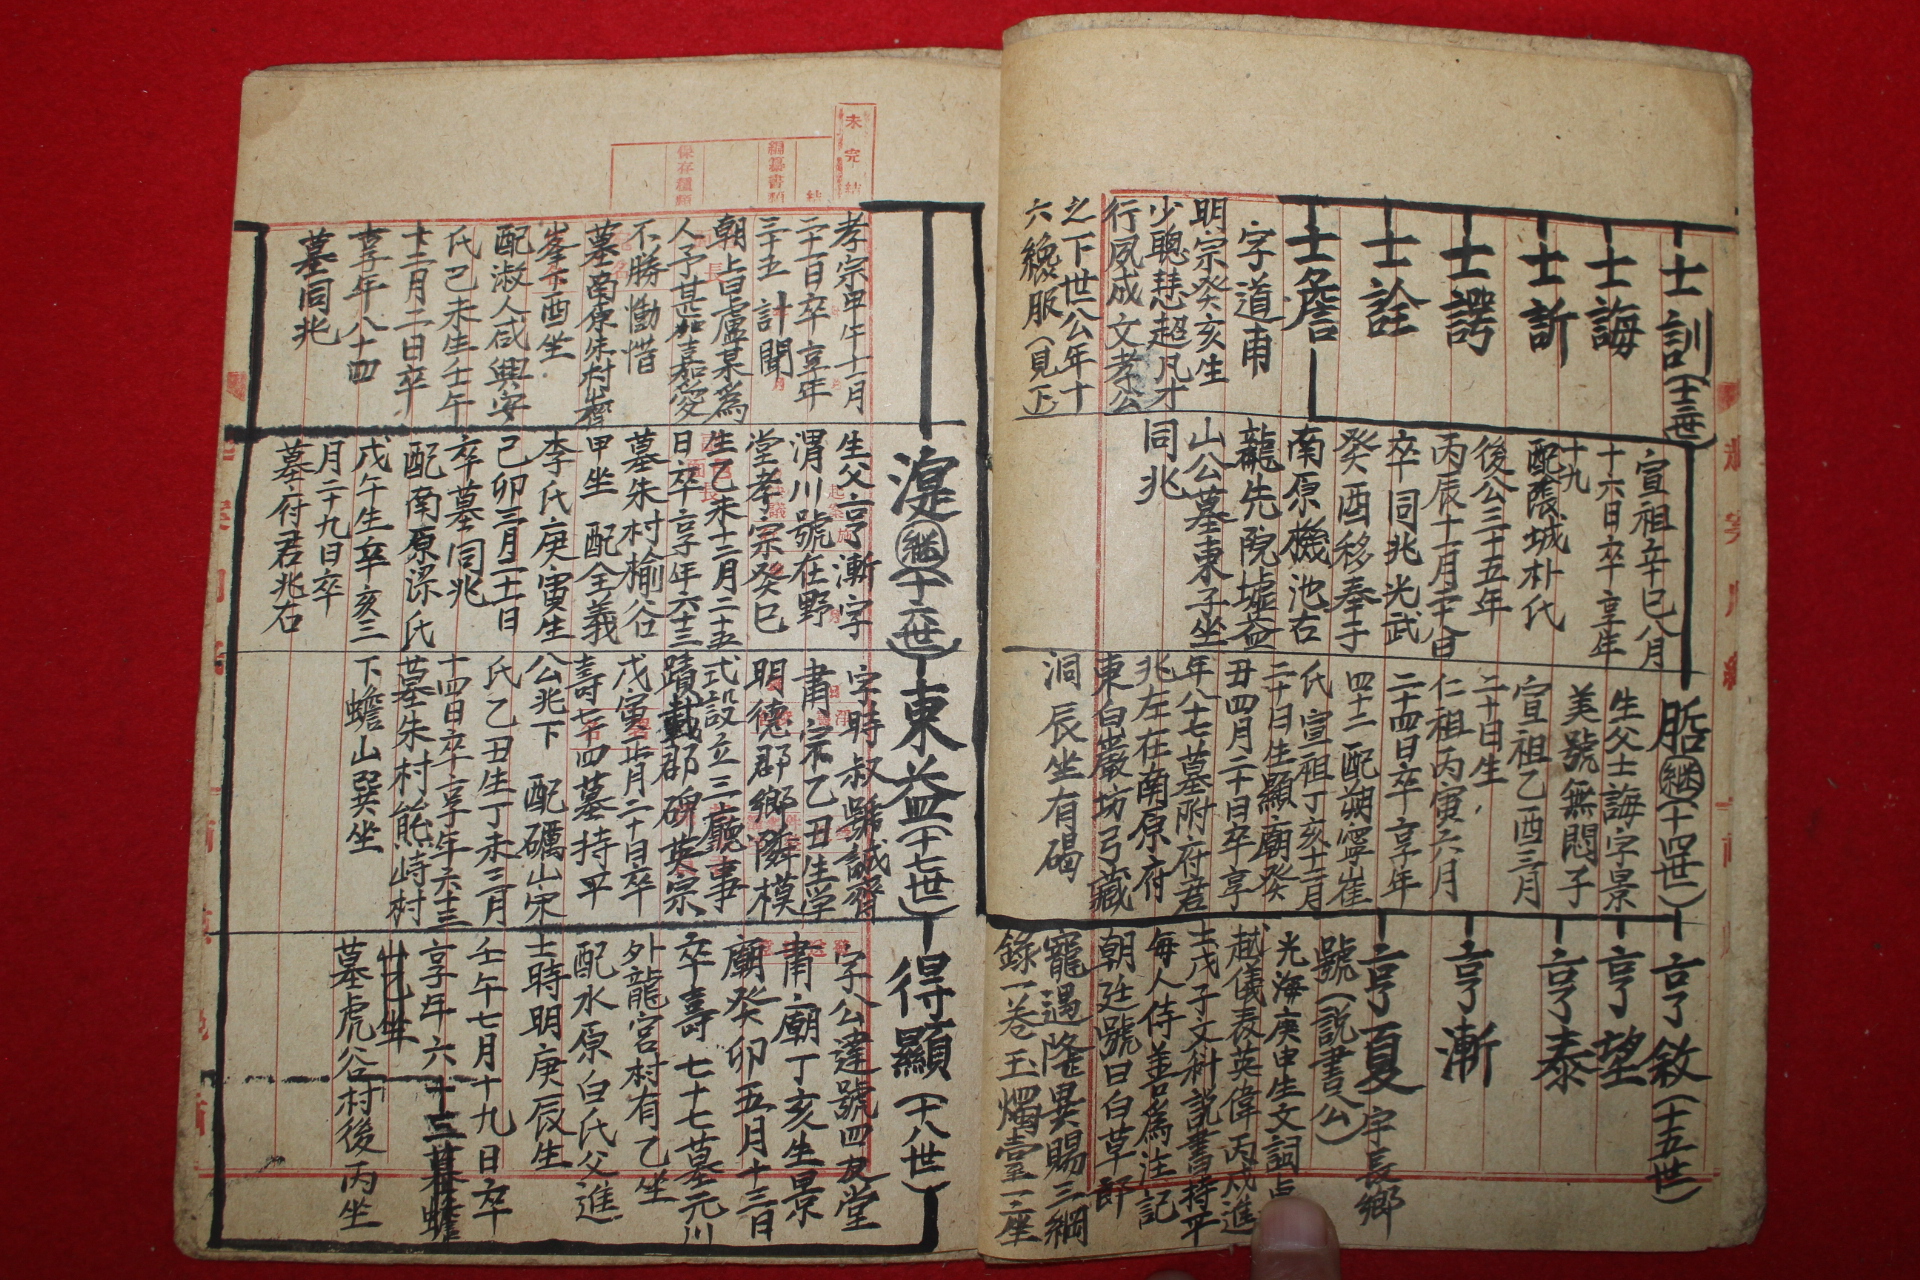 士訓(十三世)
士誨
士訢
士諤
士詮
士詹
字道甫
明宗癸亥生
少聰慧超凡才
行夙成文孝公
之下世公年十
六縗服(見下)
宣祖辛巳八月
十六日卒享年
十九
配陰城朴氏
後公三十五年
丙辰十一月二十八日
卒同兆光武
癸酉移奉于
南原機池右
龍先院墟益
山公墓東子坐
同兆
脴繼(十四世)
生父士誨字景
美號無悶子
宣祖乙酉三月
二十日生
仁祖丙寅六月
二十四日卒享年
四十二配朔寧崔
氏宣祖丁亥十二月
二十日生顯廟癸
丑四月二十日卒享
年八十七墓附府君
兆左在南原府
東白巖坊弓藏
洞辰坐有碣
亨敘(十五世)
亨望
亨泰
亨漸
亨夏字長鄉
號(說書公)
光海庚申生文詞卓
越儀表英偉丙戌進
士戊子文科說書持平
每人侍善爲注記
朝廷號曰白草郎
寵遇隆異賜三綱
錄一卷玉燭臺一座
孝宗甲午十一月
二十一日卒享年
三十五 計聞
朝上曰盧某爲
人予甚嘉愛
不勝慟惜
墓南原朱村
峯下酉坐
配淑人咸興安
氏己未生壬午
十二月二日卒
享年八十四
墓同兆
湜繼(十六世)
生父亨漸字
渭川號在野
堂孝宗癸巳
生乙未十二月二十五
日卒享年六十三
墓朱村楡谷
甲坐 配全義
李氏庚寅生
己卯三月二十一日
卒墓同兆
配南原梁氏
戊午生辛亥三
月二十九日卒
墓付君兆右
東益(十七世)
字時叔號誠齋
肅宗乙丑生學
明德郡鄉隣模
式設立三廳事
蹟載郡碑英宗
戊寅正月二十日卒
壽七十四墓持平
公兆下 配礪山宋
氏乙丑生丁未三月
十四日卒享年六十三
墓朱村熊峙村
下蟾山巽坐
得顯(十八世)
字公達號四友堂
肅廟丁亥生景
廟癸卯五月十三日
卒壽七十七墓元川
外龍宮村有乙坐
配水原白氏父進
士時明庚辰生
壬午七月十九日卒
享年六十三墓蟾
山艮坐
墓虎谷村後丙坐
未完結
編纂書類
保存種類